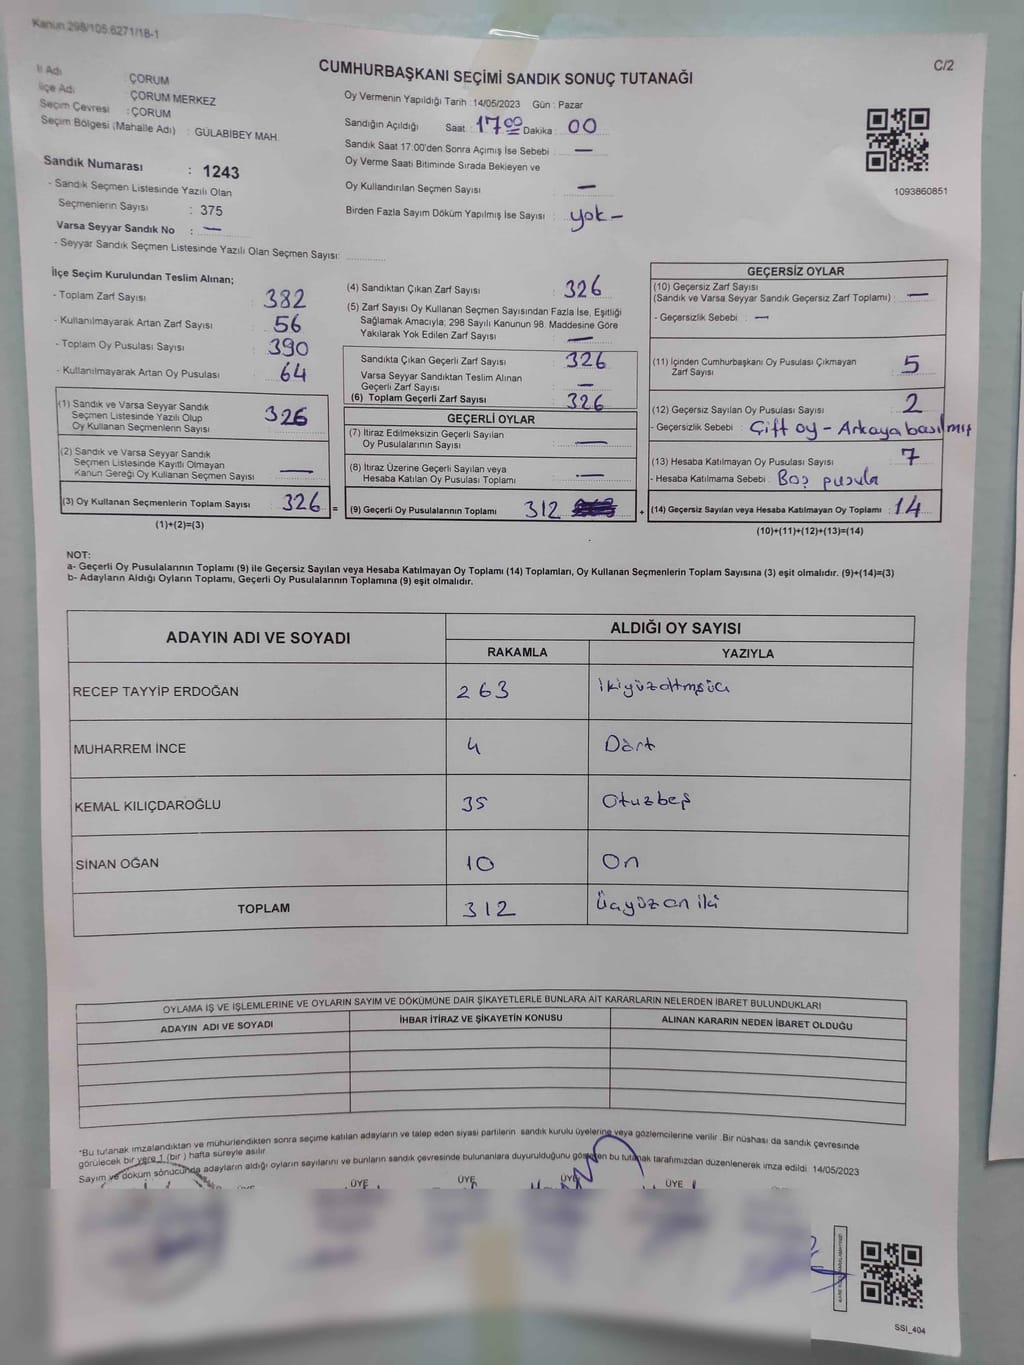 Kanun.298/105.6271/18-1
C/2
CUMHURBAŞKANI SEÇİMİ SANDIK SONUÇ TUTANAĞI
İl Adı ÇORUM
İlçe Adı ÇORUM MERKEZ
Seçim Çevresi : ÇORUM
Seçim Bölgesi (Mahalle Adı) : GÜLABİBEY MAH.
Sandık Numarası : 1243
- Sandık Seçmen Listesinde Yazılı Olan
Seçmenlerin Sayısı : 375
Varsa Seyyar Sandık No : —
- Seyyar Sandık Seçmen Listesinde Yazılı Olan Seçmen Sayısı:
Oy Vermenin Yapıldığı Tarih : 14/05/2023 Gün : Pazar
Sandığın Açıldığı Saat : 17 00 Dakika : 00
Sandık Saat 17:00'den Sonra Açımış İse Sebebi : —
Oy Verme Saati Bitiminde Sırada Bekleyen ve
Oy Kullandırılan Seçmen Sayısı : —
Birden Fazla Sayım Döküm Yapılmış İse Sayısı : yok -
1093860851
İlçe Seçim Kurulundan Teslim Alınan;
- Toplam Zarf Sayısı : 382
- Kullanılmayarak Artan Zarf Sayısı : 56
- Toplam Oy Pusulası Sayısı : 390
- Kullanılmayarak Artan Oy Pusulası : 64
(1) Sandık ve Varsa Seyyar Sandık
Seçmen Listesinde Yazılı Olup
Oy Kullanan Seçmenlerin Sayısı 326
(2) Sandık ve Varsa Seyyar Sandık
Seçmen Listesinde Kayıtlı Olmayan
Kanun Gereği Oy Kullanan Seçmen Sayısı —
(3) Oy Kullanan Seçmenlerin Toplam Sayısı 326 =
(1)+(2)=(3)
(4) Sandıktan Çıkan Zarf Sayısı : 326
(5) Zarf Sayısı Oy Kullanan Seçmen Sayısından Fazla İse, Eşitliği
Sağlamak Amacıyla; 298 Sayılı Kanunun 98. Maddesine Göre
Yakılarak Yok Edilen Zarf Sayısı : —
Sandıkta Çıkan Geçerli Zarf Sayısı : 326
Varsa Seyyar Sandıktan Teslim Alınan
Geçerli Zarf Sayısı : —
(6) Toplam Geçerli Zarf Sayısı : 326
GEÇERLİ OYLAR
(7) İtiraz Edilmeksizin Geçerli Sayılan
Oy Pusulalarının Sayısı : —
(8) İtiraz Üzerine Geçerli Sayılan veya
Hesaba Katılan Oy Pusulası Toplamı : —
(9) Geçerli Oy Pusulalarının Toplamı 312 +
GEÇERSİZ OYLAR
(10) Geçersiz Zarf Sayısı
(Sandık ve Varsa Seyyar Sandık Geçersiz Zarf Toplamı) : —
- Geçersizlik Sebebi : —
(11) İçinden Cumhurbaşkanı Oy Pusulası Çıkmayan
Zarf Sayısı : 5
(12) Geçersiz Sayılan Oy Pusulası Sayısı : 2
- Geçersizlik Sebebi : Çift oy - Arkaya basılmış
(13) Hesaba Katılmayan Oy Pusulası Sayısı : 7
- Hesaba Katılmama Sebebi : Boş pusula
(14) Geçersiz Sayılan veya Hesaba Katılmayan Oy Toplamı : 14
(10)+(11)+(12)+(13)=(14)
NOT:
a- Geçerli Oy Pusulalarının Toplamı (9) ile Geçersiz Sayılan veya Hesaba Katılmayan Oy Toplamı (14) Toplamları, Oy Kullanan Seçmenlerin Toplam Sayısına (3) eşit olmalıdır. (9)+(14)=(3)
b- Adayların Aldığı Oyların Toplamı, Geçerli Oy Pusulalarının Toplamına (9) eşit olmalıdır.
ADAYIN ADI VE SOYADI ALDIĞI OY SAYISI
RAKAMLA YAZIYLA
RECEP TAYYİP ERDOĞAN 263 ikiyüzaltmışüç
MUHARREM İNCE 4 Dört
KEMAL KILIÇDAROĞLU 35 Otuzbeş
SİNAN OĞAN 10 On
TOPLAM 312 Üçyüz on iki
OYLAMA İŞ VE İŞLEMLERİNE VE OYLARIN SAYIM VE DÖKÜMÜNE DAİR ŞİKAYETLERLE BUNLARA AİT KARARLARIN NELERDEN İBARET BULUNDUKLARI
ADAYIN ADI VE SOYADI İHBAR İTİRAZ VE ŞİKAYETİN KONUSU ALINAN KARARIN NEDEN İBARET OLDUĞU
*Bu tutanak imzalandıktan ve mühürlendikten sonra seçime katılan adayların ve talep eden siyasi partilerin sandık kurulu üyelerine veya gözlemcilerine verilir. Bir nüshası da sandık çevresinde
görülecek bir yere 1 (bir) hafta süreyle asılır.
Sayım ve döküm sonucunda adayların aldığı oyların sayılarını ve bunların sandık çevresinde bulunanlara duyurulduğunu gösteren bu tutanak tarafımızdan düzenlenerek imza edildi. 14/05/2023
ÜYE ÜYE ÜYE ÜYE
SSI_404